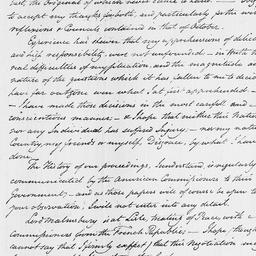 but, the Original of which never came to hand. —
to accept my thanks for both, and particularly for the
reflexions & Counsel contained in that of October.
Experience has shewn that my apprehensions of delicacy
and high responsibility were not unfounded — in truth the
real difficulties of my situation, and the magnitude and
nature of the questions which it has fallen to me to decide
have far outgone even what I at first apprehended.
— I have made those decisions in the most careful and
conscientious manner — & I hope that neither this Nation
nor any Individual has suffered Injury — nor my native
Country, my friends or myself, Disgrace, by what I have
done.
The History of our proceedings, I understand, is regularly
communicated by the American Commissioners to their
Government — and as those papers will of course be open to
your observation, I will not enter into any detail.
Lord Malmesbury is at Lisle, treating of Peace with
Commissioners from the French Republic — I hope, though I
cannot say that I firmly expect, that this Negotiation